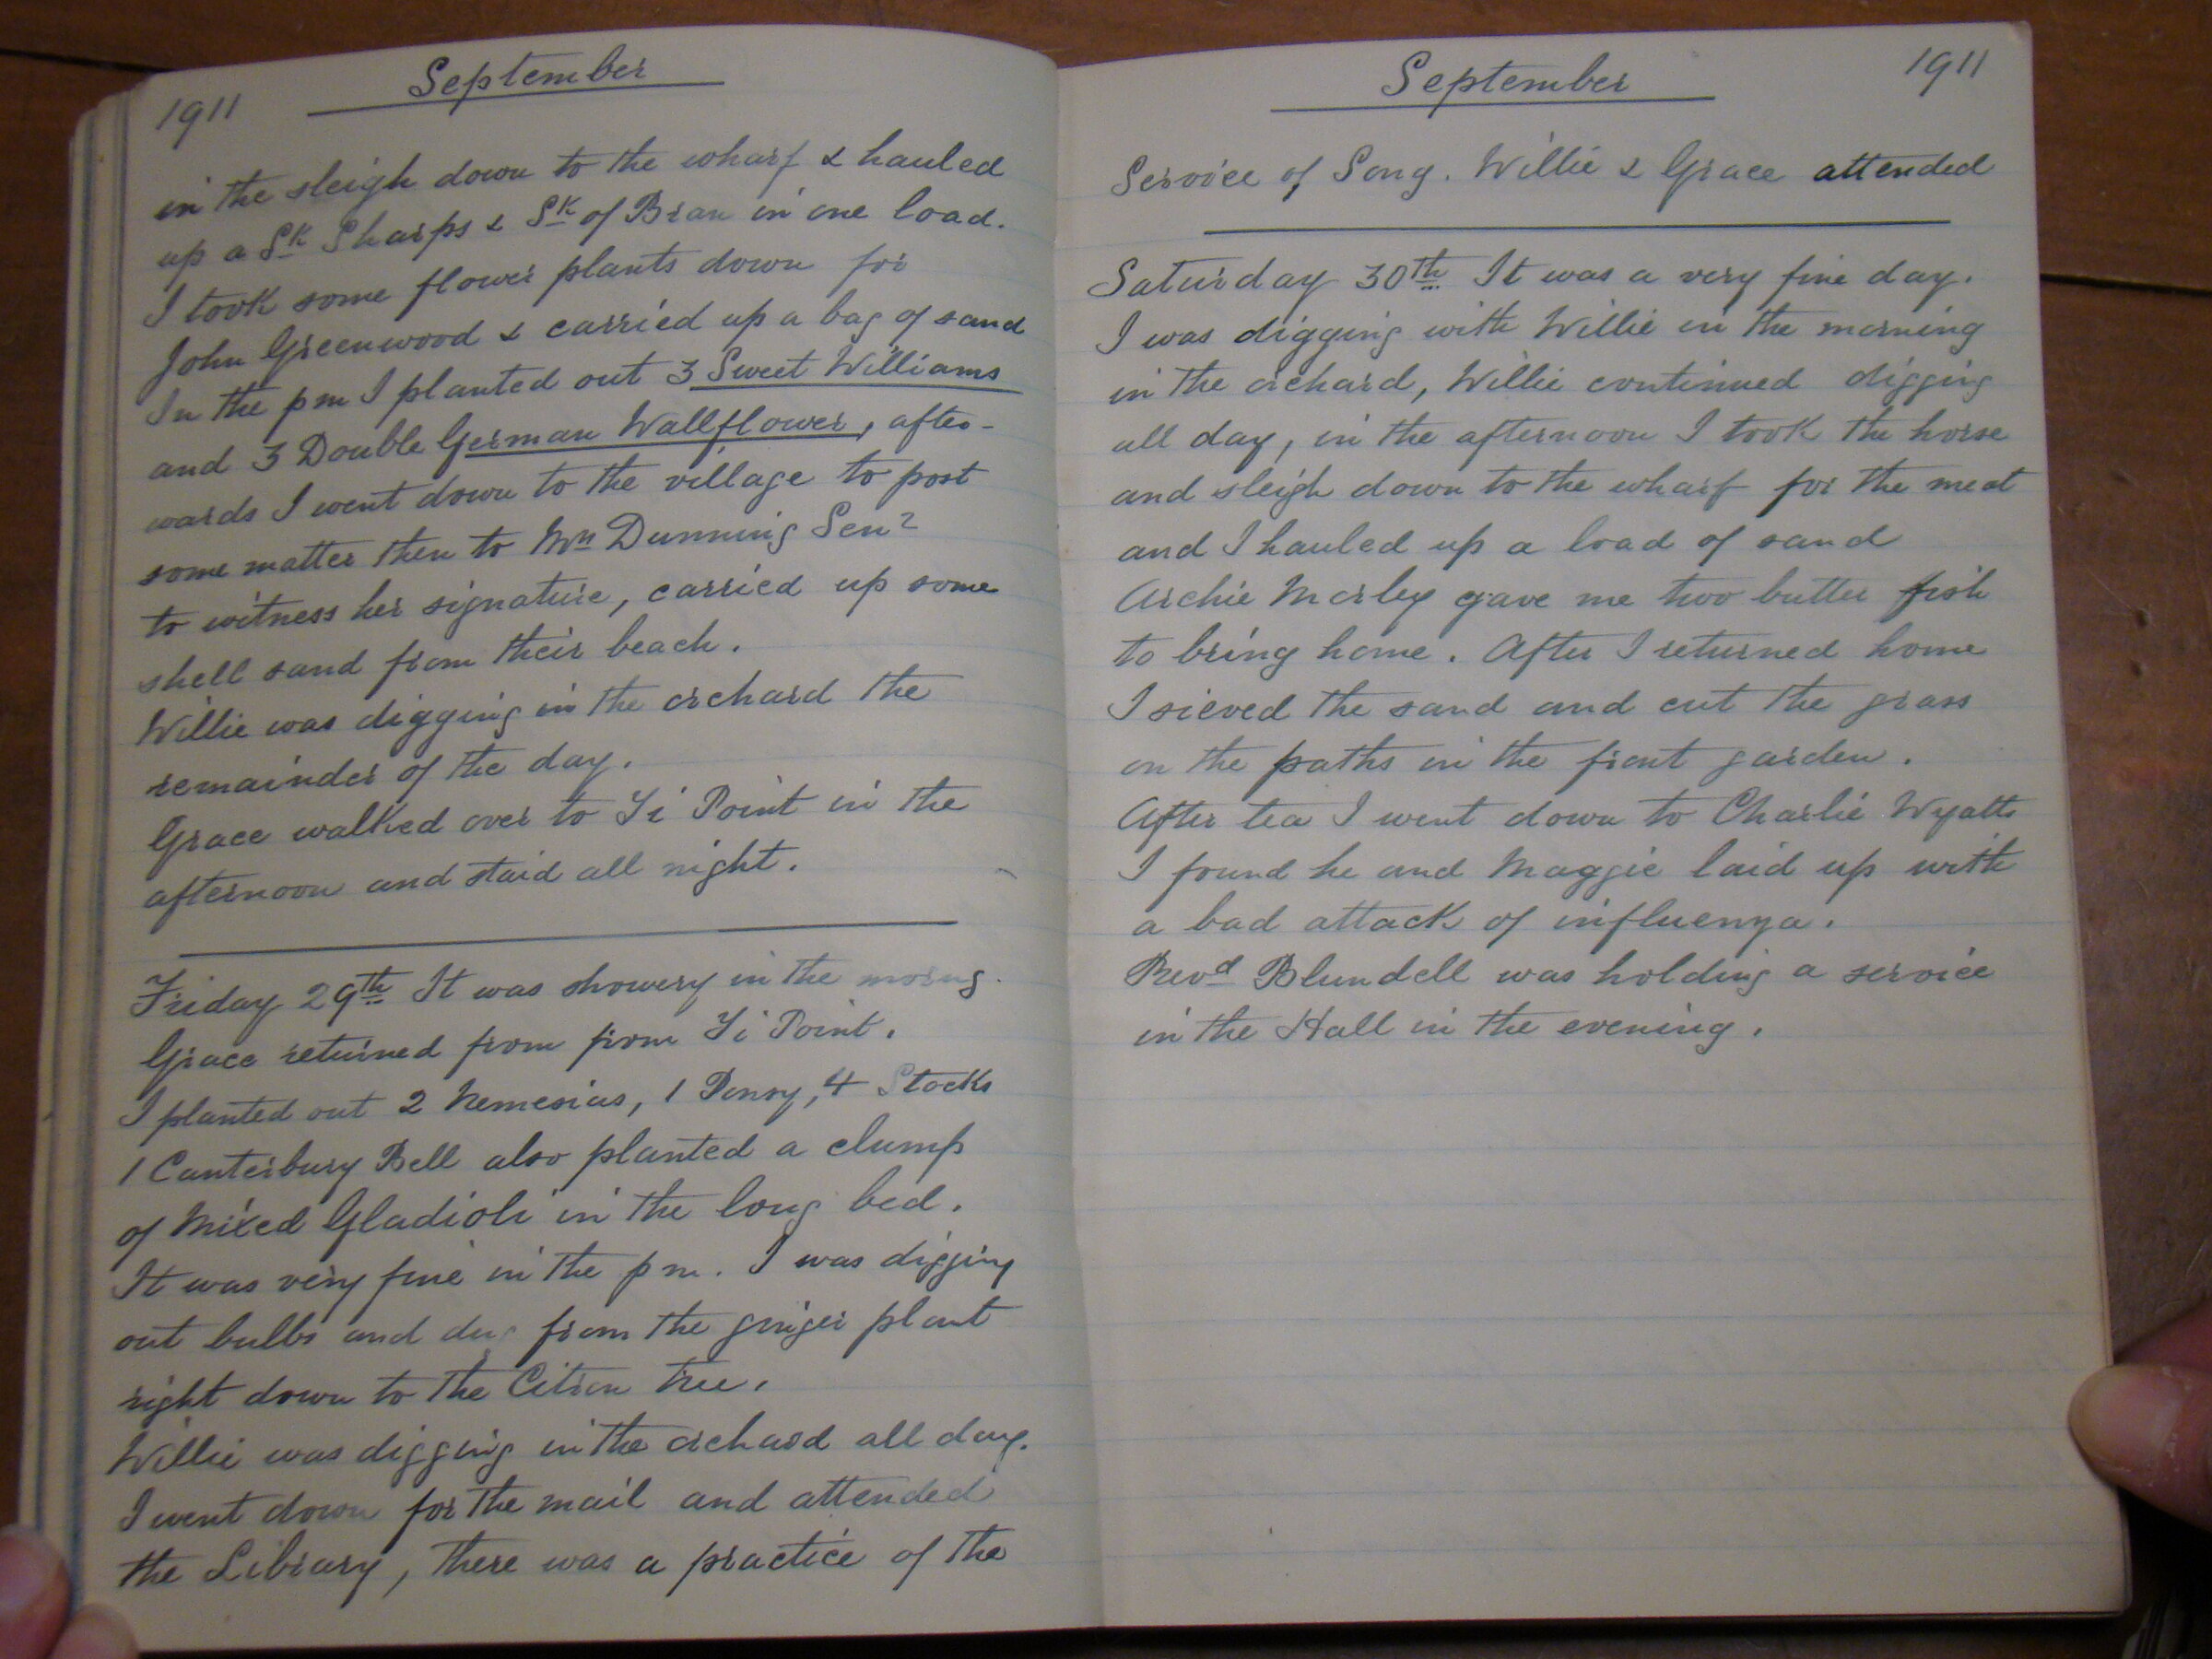 1911 September
in the sleigh down to the wharf & hauled
up a Sk Sharps & Sk of Bran in one load.
I took some flower plants down for
John Greenwood & carried up a bag of sand
In the pm I planted out 3 Sweet Williams
and 3 Double German Wallflower, after-
wards I went down to the village to post
some matter then to Mrs Dunning Senr
to witness her signature, carried up some
shell sand from their beach.
Willie was digging in the orchard the
remainder of the day.
Grace walked over to Ti Point in the
afternoon and staid all night.
Friday 29th It was showery in the morng.
Grace returned from from Ti Point.
I planted out 2 Nemesias, 1 Pansy, 4 Stocks
1 Canterbury Bell also planted a clump
of Mixed Gladioli in the long bed.
It was very fine in the pm. I was digging
out bulbs and dug from the ginger plant
right down to the Citron tree.
Willie was digging in the orchard all day.
I went down for the mail and attended
the Library, there was a practice of the
September 1911
Service of Song. Willie & Grace attended
Saturday 30th It was a very fine day.
I was digging with Willie in the morning
in the orchard, Willie continued digging
all day, in the afternoon I took the horse
and sleigh down to the wharf for the meat
and I hauled up a load of sand
Archie Morley gave me two butter fish
to bring home. After I returned home
I sieved the sand and cut the grass
on the paths in the front garden.
After tea I went down to Charlie Wyatts
I found he and Maggie laid up with
a bad attack of influenza.
Revd Blundell was holding a service
in the Hall in the evening.